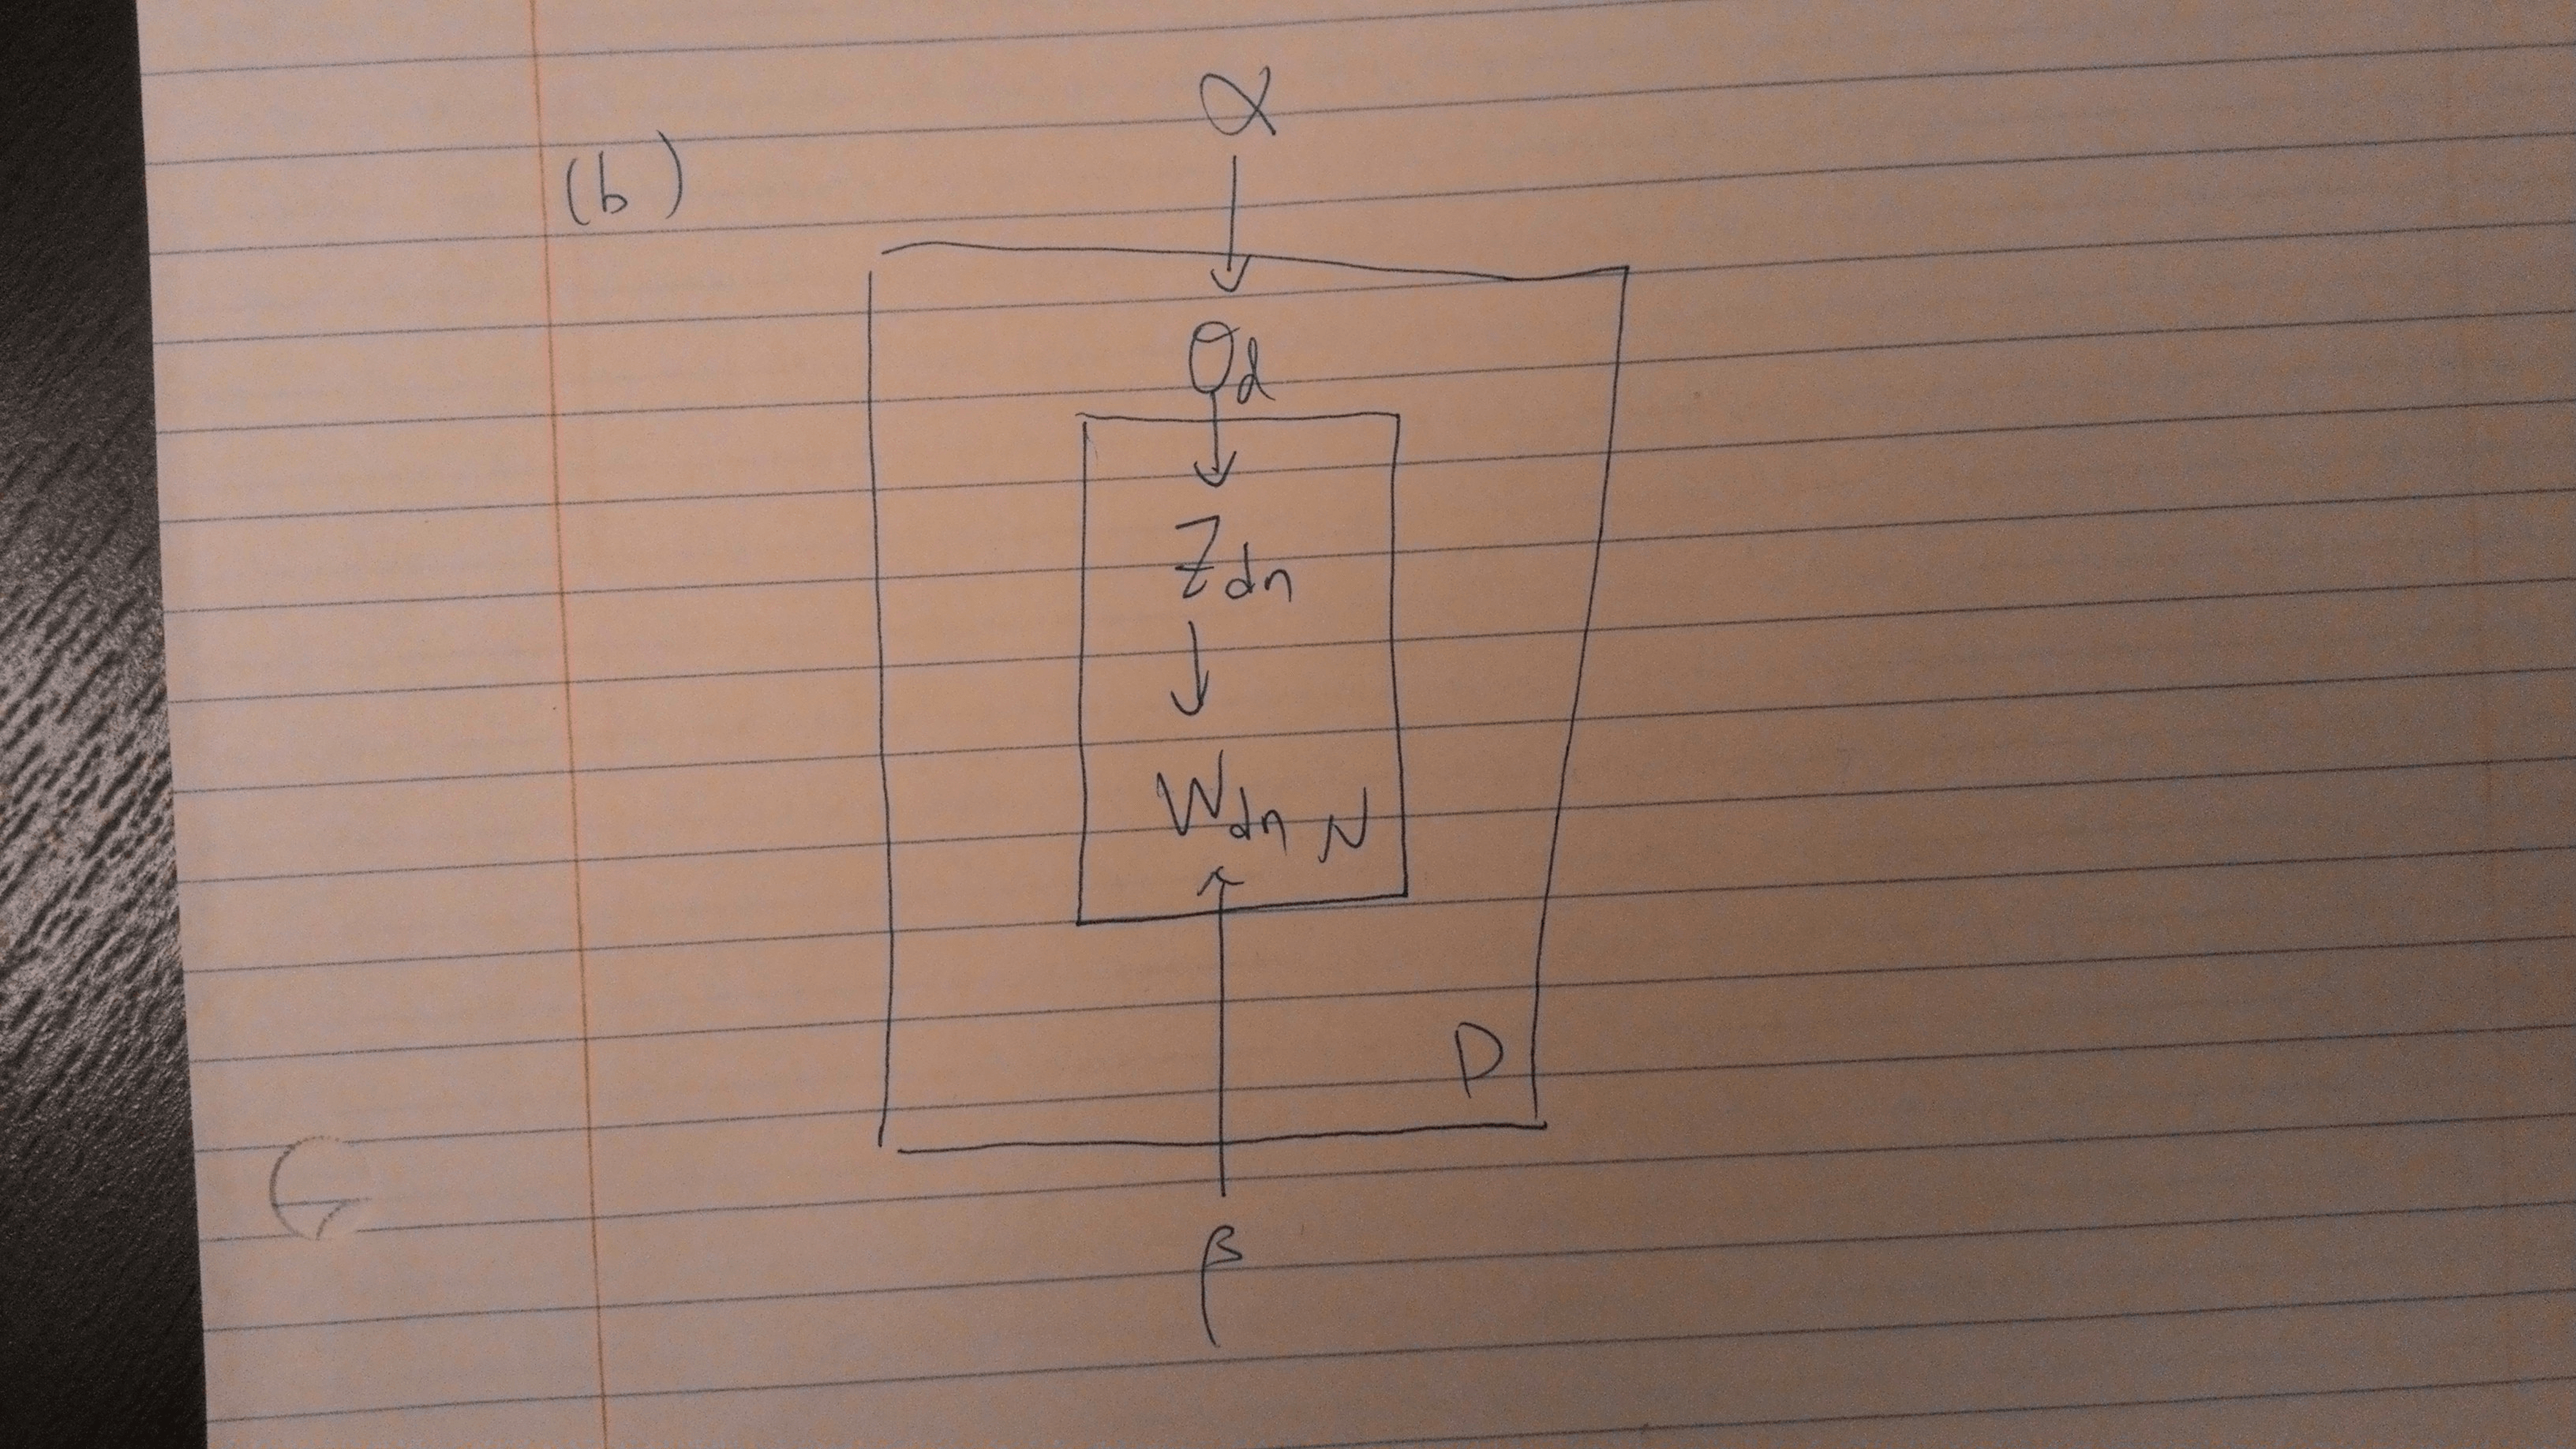 α
(b)
θd
Zdn
Wdn N
D
β